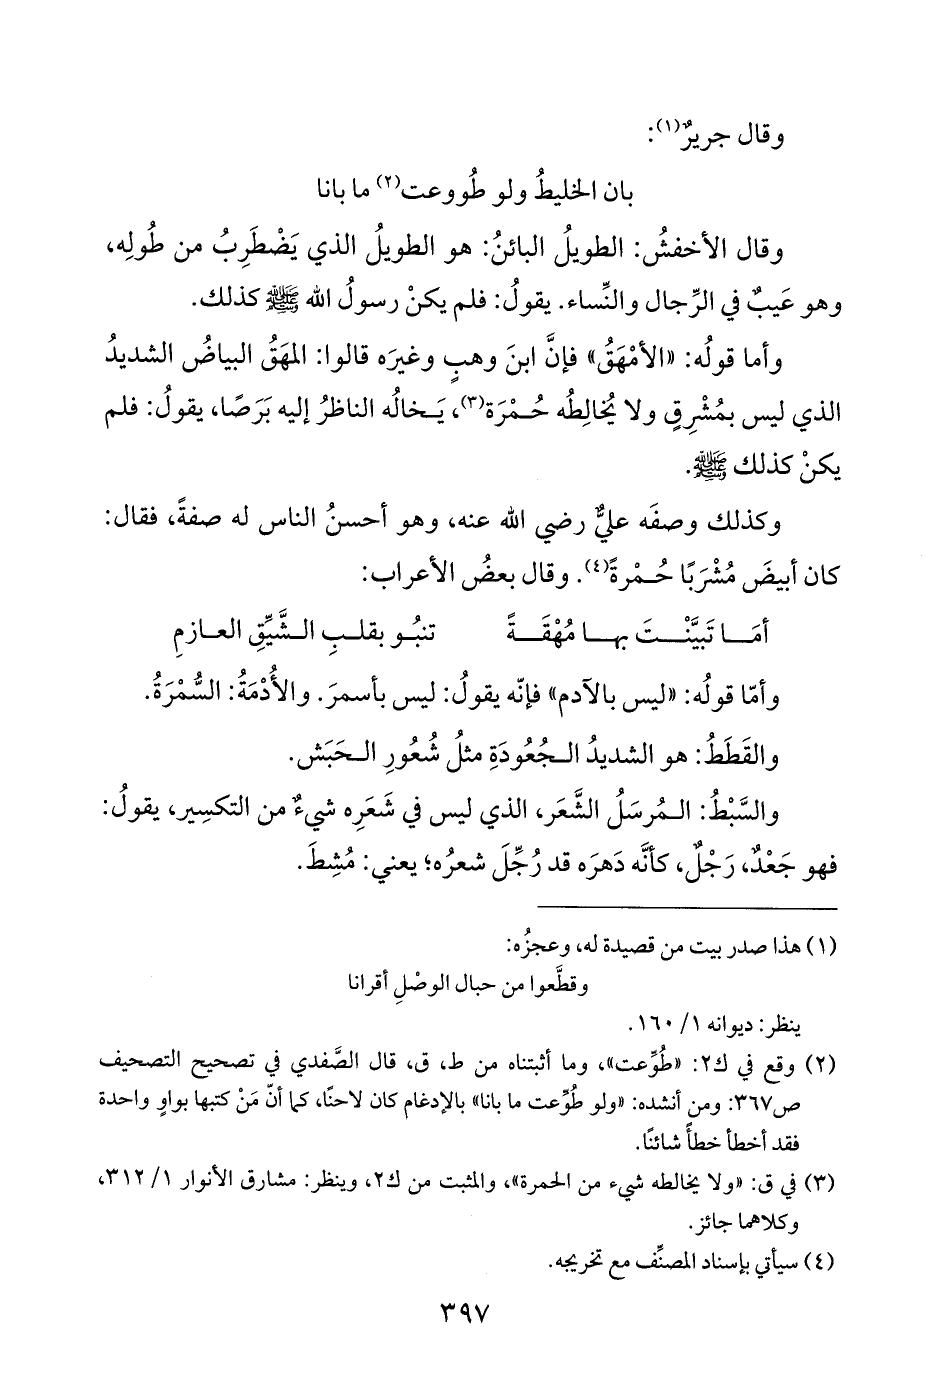 وقال جريرٌ(١):
بان الخليطُ ولو طُووعت(٢) ما بانا
وقال الأخفشُ: الطويلُ البائنُ: هو الطويلُ الذي يَضْطَرِبُ من طُولِه،
وهو عَيبٌ في الرِّجال والنِّساء. يقولُ: فلم يكنْ رسولُ الله ﷺ كذلك.
وأما قولُه: «الأمْهَقُ» فإنَّ ابنَ وهبٍ وغيرَه قالوا: المهَقُ البياضُ الشديدُ
الذي ليس بمُشْرِقٍ ولا يُخالِطُه حُمْرَة(٣)، يَخالُه الناظرُ إليه بَرَصًا، يقولُ: فلم
يكنْ كذلك ﷺ.
وكذلك وصفَه عليٌّ رضي الله عنه، وهو أحسنُ الناس له صفةً، فقال:
كان أبيضَ مُشْرَبًا حُمْرةً(٤). وقال بعضُ الأعراب:
أمَا تَبيَّنْتَ بها مُهْقَةً تنبُو بقلبِ الشَّيِّقِ العازمِ
وأمّا قولُه: «ليس بالآدم» فإنّه يقولُ: ليس بأسمرَ. والأُدْمَةُ: السُّمْرَةُ.
والقَطَطُ: هو الشديدُ الجُعُودَةِ مثلُ شُعُورِ الحَبَش.
والسَّبْطُ: المُرسَلُ الشَّعَر، الذي ليس في شَعَرِه شيءٌ من التكسِير، يقولُ:
فهو جَعْدٌ، رَجْلٌ، كأنَّه دَهرَه قد رُجِّلَ شعرُه؛ يعني: مُشِطَ.
(١) هذا صدر بيت من قصيدة له، وعجزُه:
وقطَّعوا من حبال الوصْلِ أقرانا
ينظر: ديوانه ١/ ١٦٠.
(٢) وقع في ك٢: «طُوِّعت»، وما أثبتناه من ط، ق، قال الصَّفدي في تصحيح التصحيف
ص٣٦٧: ومن أنشده: «ولو طُوِّعت ما بانا» بالإدغام كان لاحنًا، كما أنّ مَنْ كتبها بواوٍ واحدة
فقد أخطأ خطأً شائنًا.
(٣) في ق: «ولا يخالطه شيء من الحمرة»، والمثبت من ك٢، وينظر: مشارق الأنوار ١/ ٣١٢،
وكلاهما جائز.
(٤) سيأتي بإسناد المصنِّف مع تخريجه.
٣٩٧